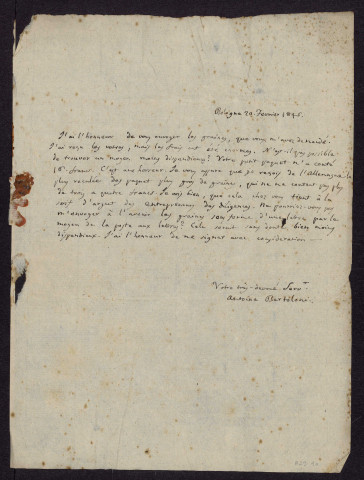 Bologna 29. Fevrier 1845.
J'ai l'honneur de vous envoyer les graines, que vous m'avez demandé.
J'ai reçu les votres, mais les frais ont été enormes. N'est-il pas possible
de trouver un moyen moins dispendieux? Votre petit paquet m'a couté
18. francs. C'est une horreur. Je vous assure que je reçois de l'Allemagne la
plus reculée des paquets plus gros de graines, qui ne me coutent pas plus
de trois a quatre francs. Je vois bien, que cela chez vous tient à la
soif d'argent des entrepreneurs des diligences. Ne pourriez-vous pas
m'envoyer à l'avenir les graines sous forme d'une lettre par le
moyen de la poste aux lettres? Cela seroit sans doute bien moins
dispendieux. J'ai l'honneur de me signer avec consideration
Votre très-devoué Serv.r
Antoine Bertoloni.